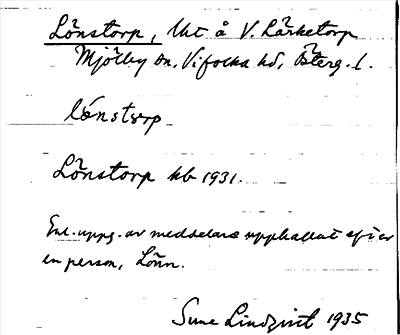 Lönstorp, Ut. å V. Lärketorp
Mjölby sn, Vifolka hd, Österg. l.
lónstorp
Lönstorp kb 1931.
Enl. uppg. av meddelare uppkallat efter
en person, Lönn.
Sune Lindqvist 1935